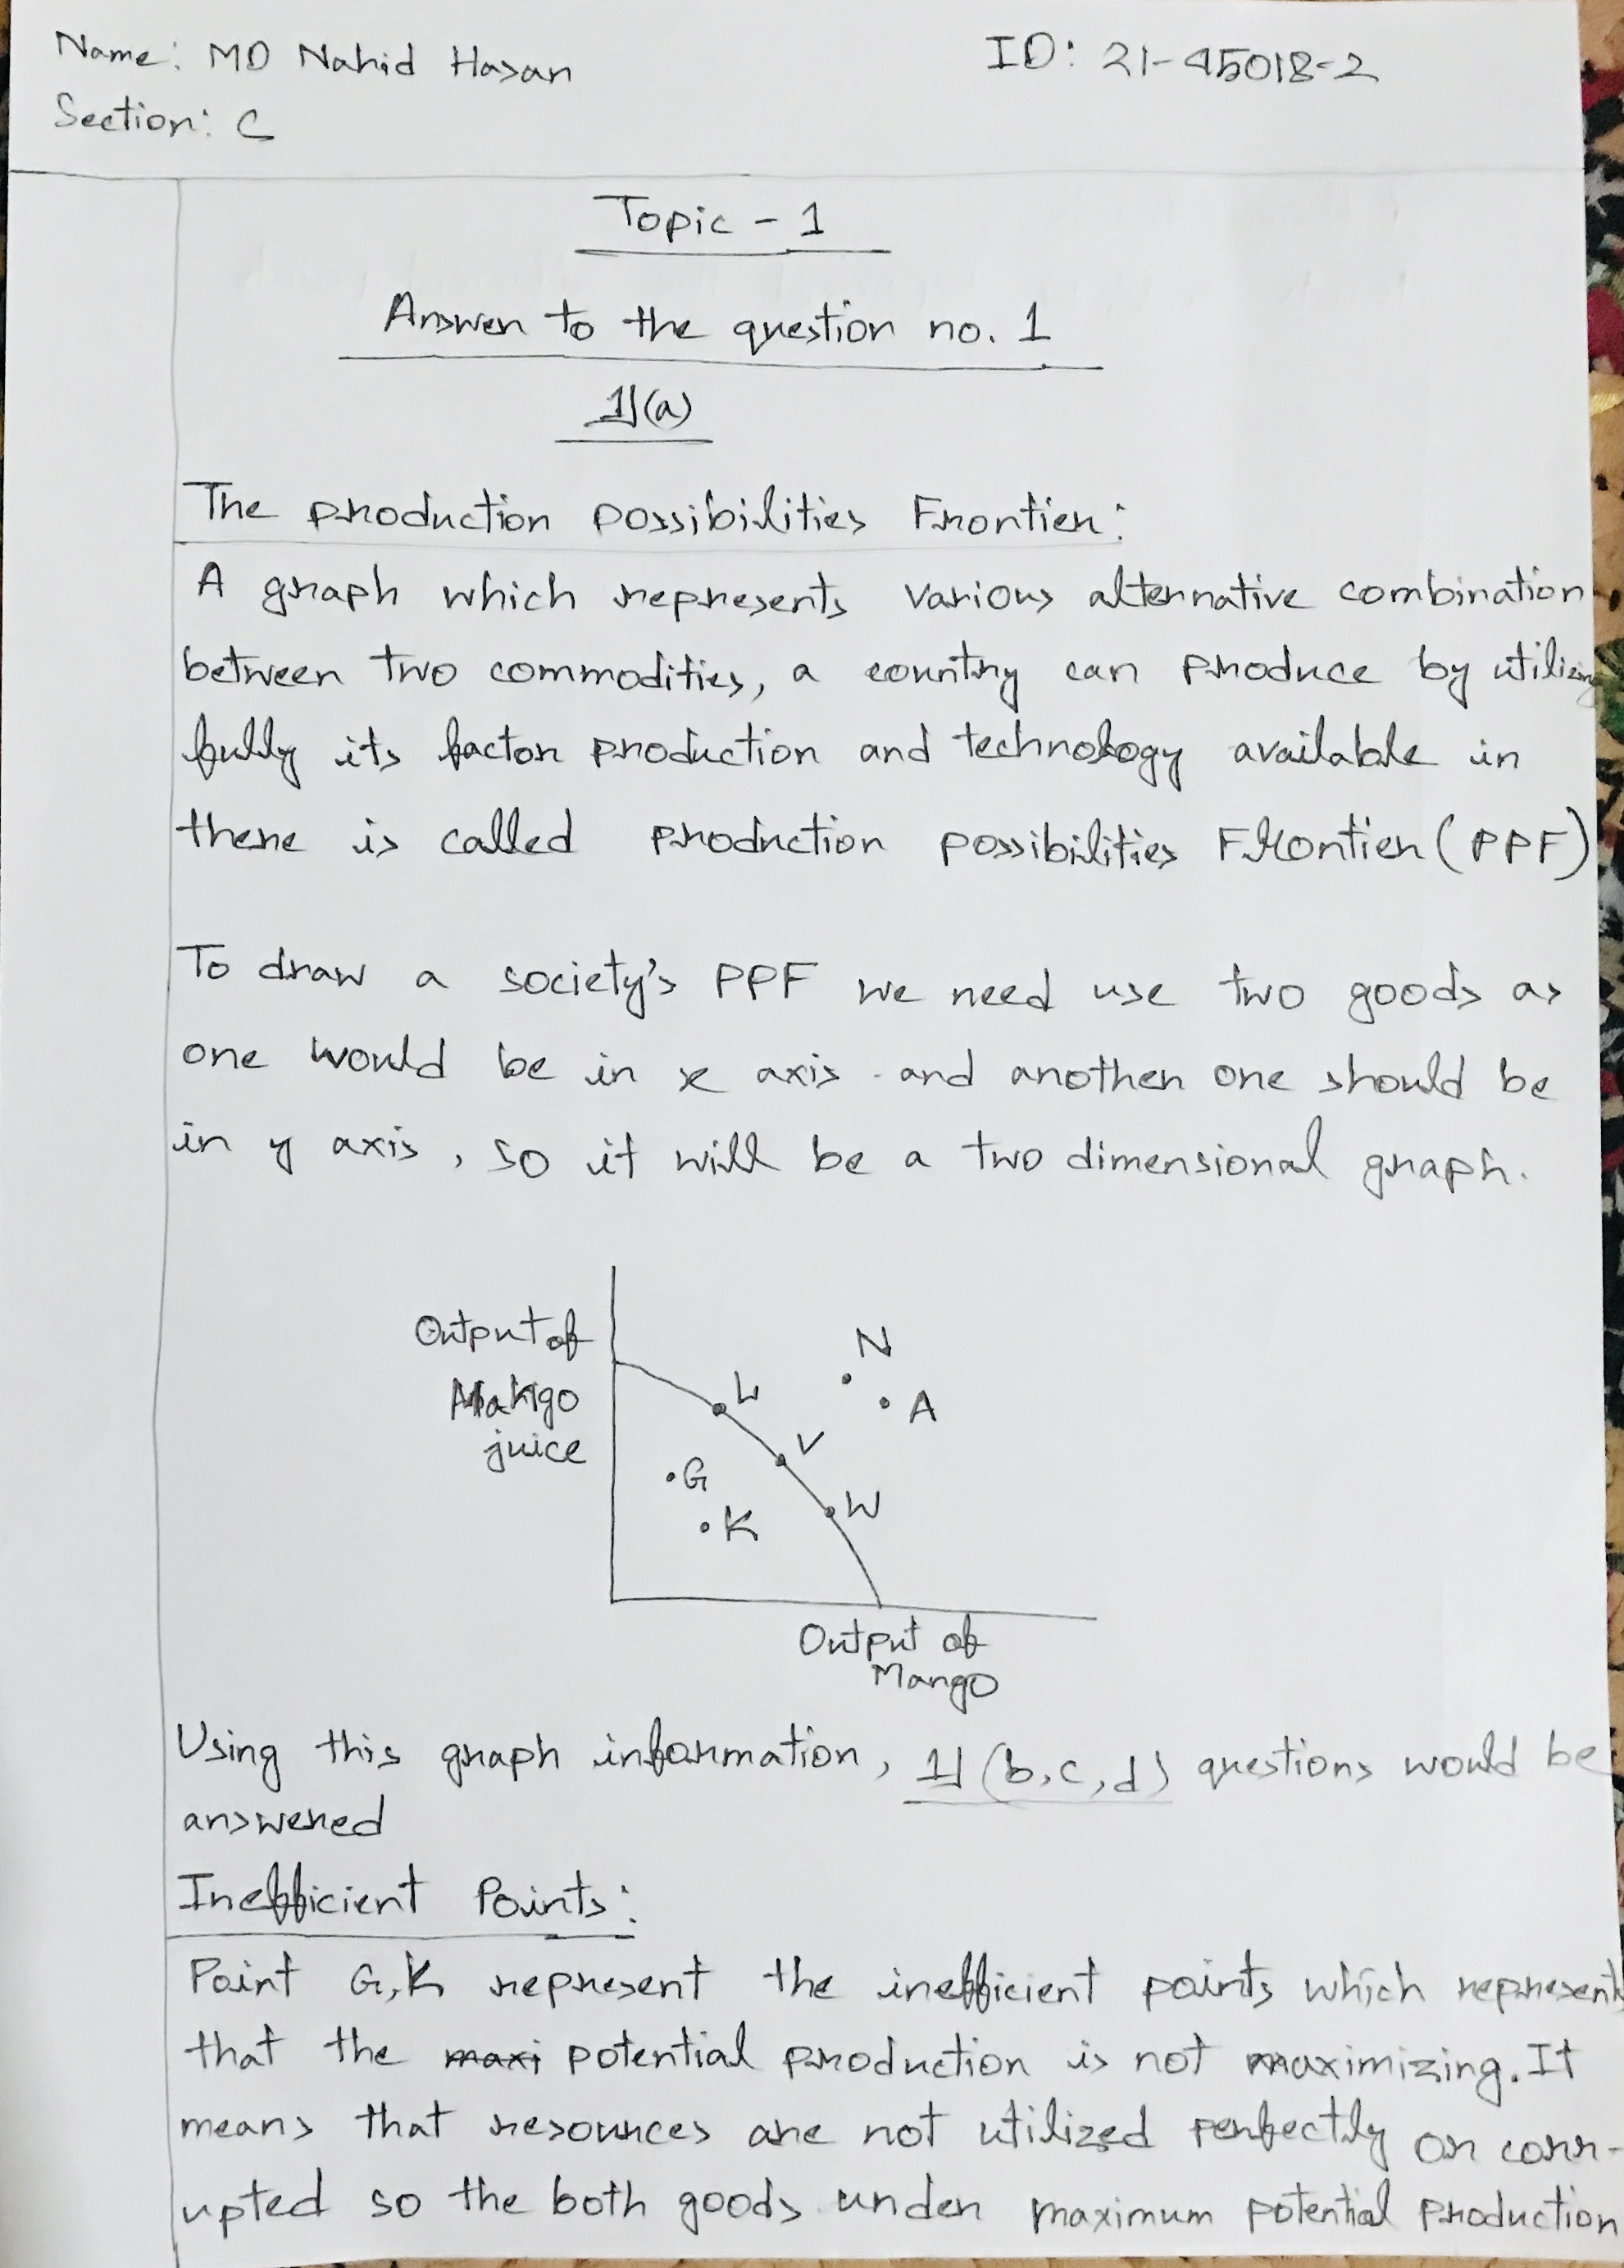 Name: MD Nahid Hasan
ID: 21-45018-2
Section: C
Topic - 1
Answer to the question no. 1
1](a)
The production possibilities Frontier:
A graph which represents various alternative combination
between two commodities, a country can produce by utilizing
fully its factor production and technology available in
there is called production possibilities Frontier (PPF)
To draw a society's PPF we need use two goods as
one would be in x axis and another one should be
in y axis, so it will be a two dimensional graph.
Output of
Mango
juice
N
A
L
V
G
W
K
Output of
Mango
Using this graph information, 1] (b,c,d) questions would be
answered
Inefficient Points:
Point G,K represent the inefficient points which represents
that the maxi potential production is not maximizing. It
means that resources are not utilized perfectly or corr-
upted so the both goods under maximum potential production